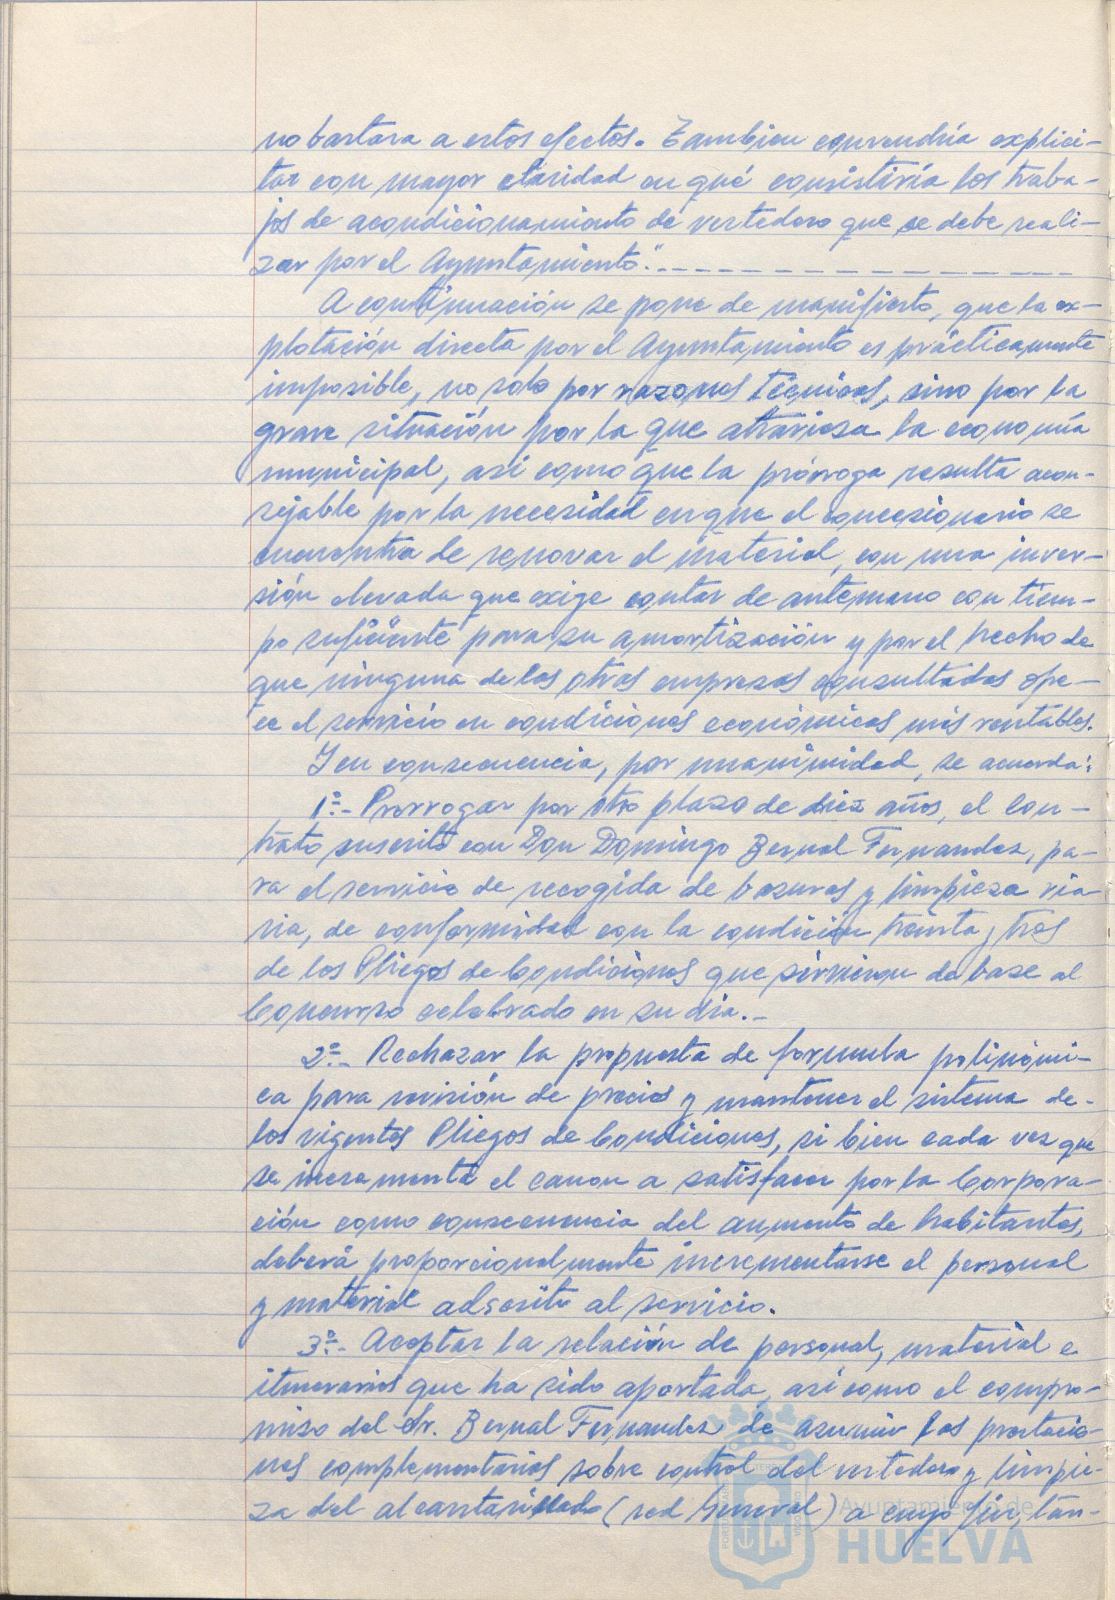 no bastara a estos efectos. Tambien convendría explici-
tar con mayor claridad en qué consistiría los traba-
jos de acondicionamiento de vertedero que se debe reali-
zar por el Ayuntamiento."
A continuación se pone de manifiesto, que la ex-
plotación directa por el Ayuntamiento es prácticamente
imposible, no solo por razones técnicas, sino por la
grave situación por la que atraviesa la economía
municipal, asi como que la prórroga resulta acon-
sejable por la necesidad en que el concesionario se
encuentra de renovar el material, con una inver-
sión elevada que exige contar de antemano con tiem-
po suficiente para su amortización y por el hecho de
que ninguna de las otras empresas consultadas ofre-
ce el servicio en condiciones económicas más rentables.
Y en consecuencia, por unanimidad, se acuerda:
1º.- Prorrogar por otro plazo de diez años, el Con-
trato suscrito con Don Domingo Bernal Fernandez, pa-
ra el servicio de recogida de basuras y limpieza via-
ria, de conformidad con la condición treinta y tres
de los Pliegos de Condiciones que sirvieron de base al
Concurso celebrado en su dia.-
2º.- Rechazar la propuesta de formula polinómi-
ca para revisión de precios y mantener el sistema de-
los vigentes Pliegos de Condiciones, si bien cada vez que
se incrementa el canon a satisfacer por la Corpora-
ción como consecuencia del aumento de habitantes,
deberá proporcionalmente incrementarse el personal
y material adscrito al servicio.
3º.- Aceptar la relación de personal, material e
itinerarios que ha sido aportada, asi como el compro-
miso del Sr. Bernal Fernandez de asumir las prestacio-
nes complementarias sobre control del vertedero y limpie-
za del alcantarillado (red General) a cuyo fin, tan-
Ayuntamiento de
HUELVA